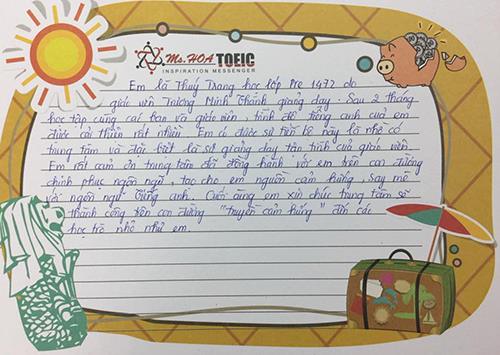 Ms. HOA TOEIC
INSPIRATION MESSENGER
Em là Thuỳ Trang học lớp Pre 1472 do
giáo viên Trương Minh Thành giảng dạy. Sau 2 tháng
học tập cùng các bạn và giáo viên, trình độ tiếng anh của em
được cải thiện rất nhiều. Em có được sự tiến bộ này là nhờ có
trung tâm và đặc biệt là sự giảng dạy tận tình của giáo viên.
Em rất cảm ơn trung tâm đã đồng hành với em trên con đường
chinh phục ngôn ngữ, tạo cho em nguồn cảm hứng, say mê
với ngôn ngữ tiếng anh. Cuối cùng em xin chúc trung tâm sẽ
thành công trên con đường "truyền cảm hứng" đến các
học trò nhỏ như em.